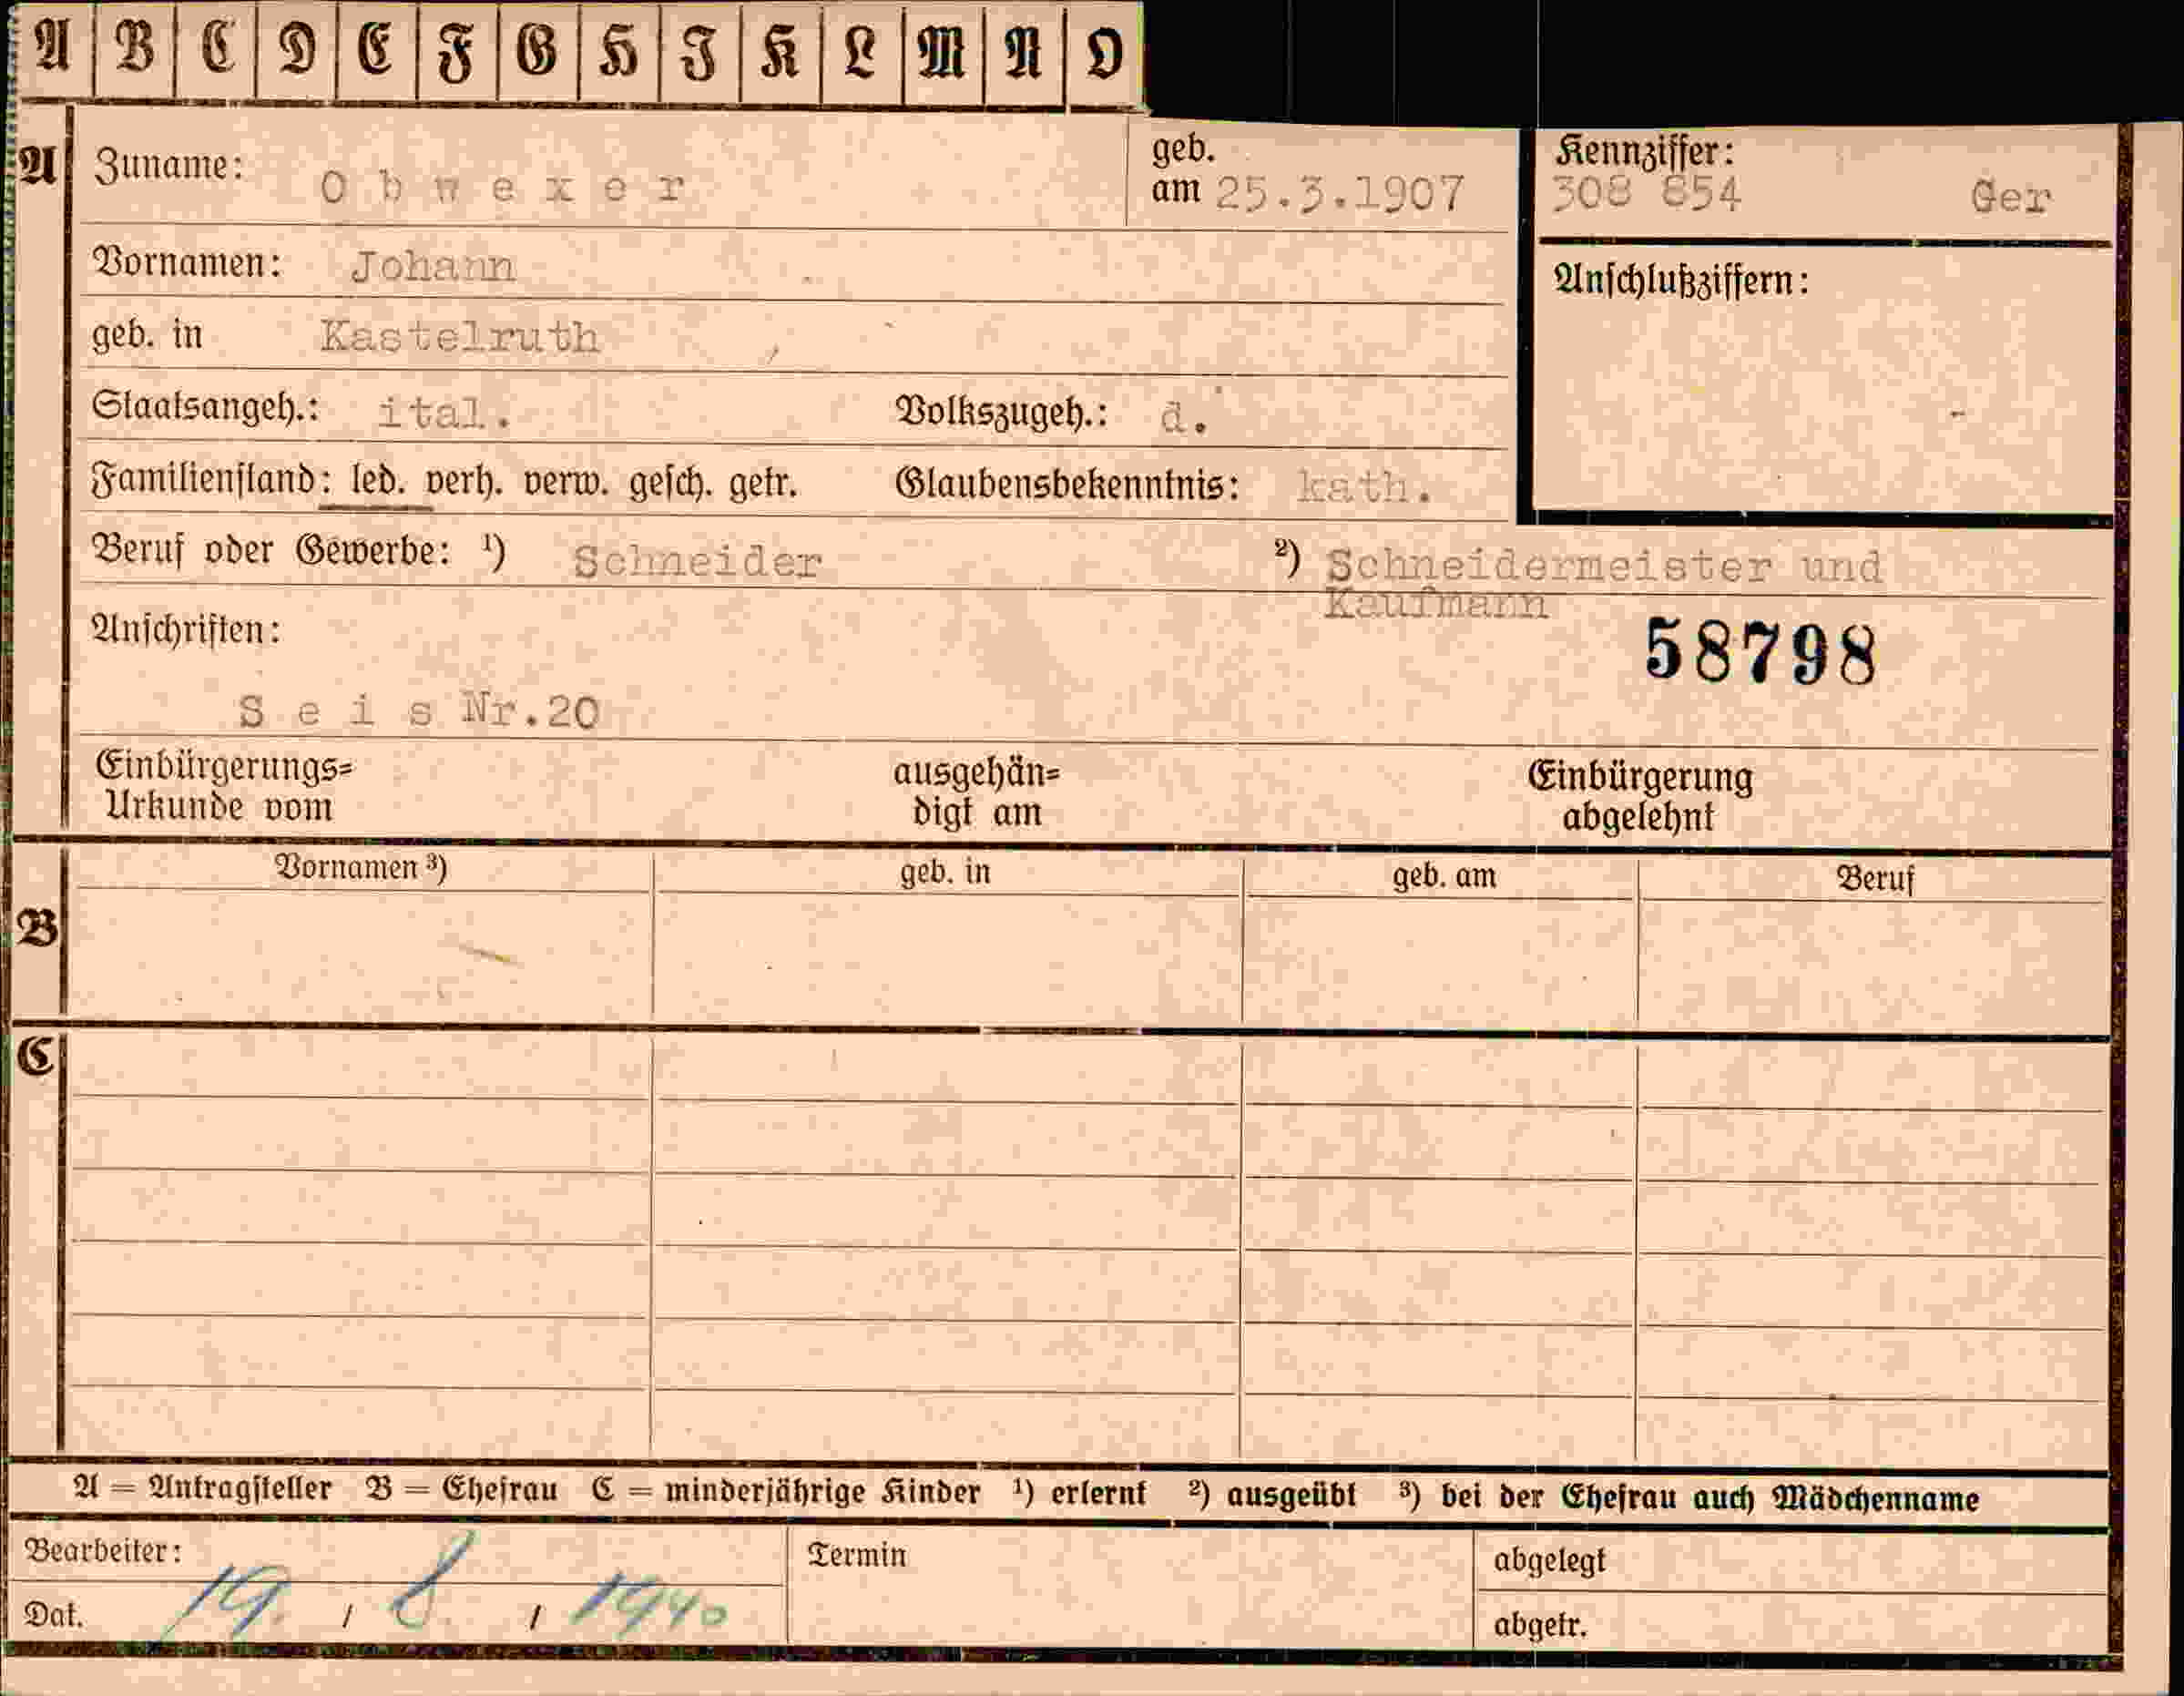 A B C D E F G H J K L M N O
A Zuname: Obwexer geb. am 25.3.1907 Kennziffer: 308 854 Ger
Vornamen: Johann Anschlußziffern:
geb. in Kastelruth
Staatsangeh.: ital. Volkszugeh.: d.
Familienstand: led. verh. verw. gesch. getr. Glaubensbekenntnis: kath.
Beruf oder Gewerbe: ¹) Schneider ²) Schneidermeister und
Kaufmann
Anschriften: 58798
S e i s Nr.20
Einbürgerungs= ausgehän= Einbürgerung
Urkunde vom digt am abgelehnt
Vornamen ³) geb. in geb. am Beruf
B
C
A = Antragsteller B = Ehefrau C = minderjährige Kinder ¹) erlernt ²) ausgeübt ³) bei der Ehefrau auch Mädchenname
Bearbeiter: Termin abgelegt
Dat. 19. / 8. / 1940 abgetr.